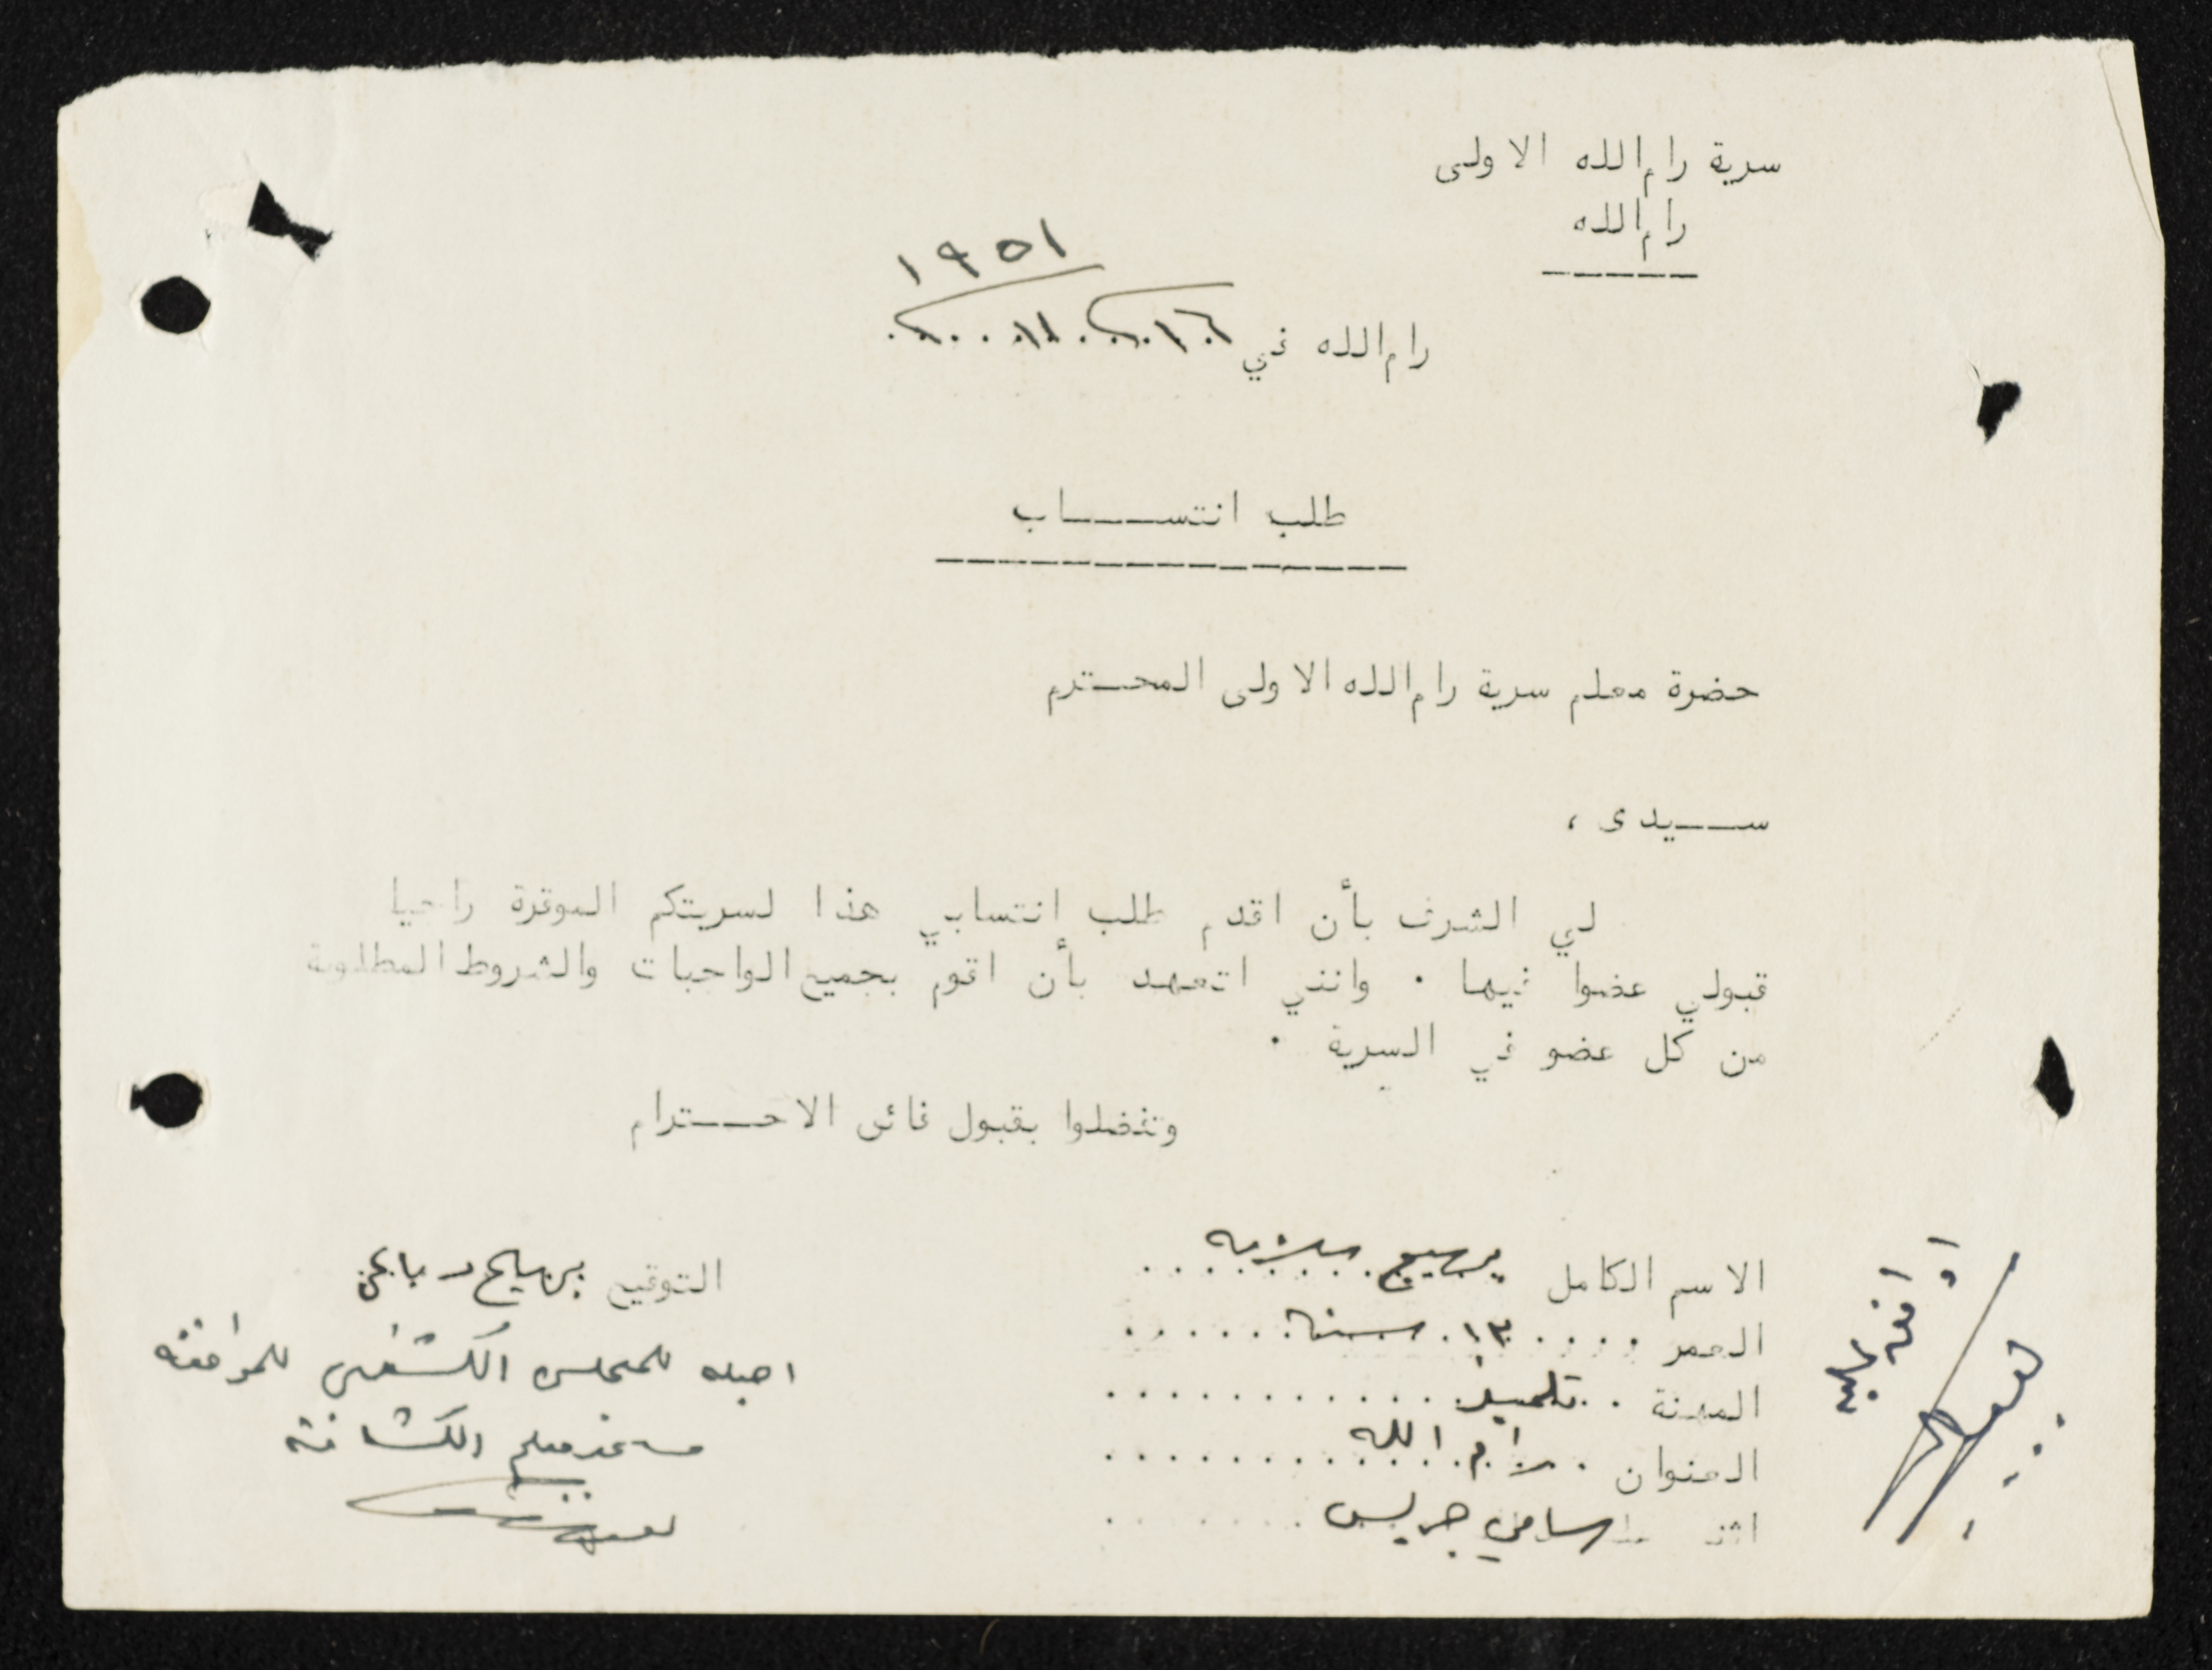 سرية رام الله الاولى
رام الله
١٩٥١
رام الله في ١٦ / ١١ /
طلب انتســـاب
حضرة معلم سرية رام الله الاولى المحـترم
ســيدى ،
لي الشرف بأن اقدم طلب إنتسابي هذا لسريتكم الموقرة راجيا
قبولي عضوا فيها . وانني اتعهد بأن اقوم بجميع الواجبات والشروط المطلوبة
من كل عضو في السرية .
وتفضلوا بقبول فائق الاحــترام
الاسم الكامل بهيج
التوقيع بهيج
العمر ١٣ سنة
احيله للمجلس الكشفي للموافقة
المهنة تلميذ
معلم الكشافة
العنوان رام الله
سامي جريس
اوافق